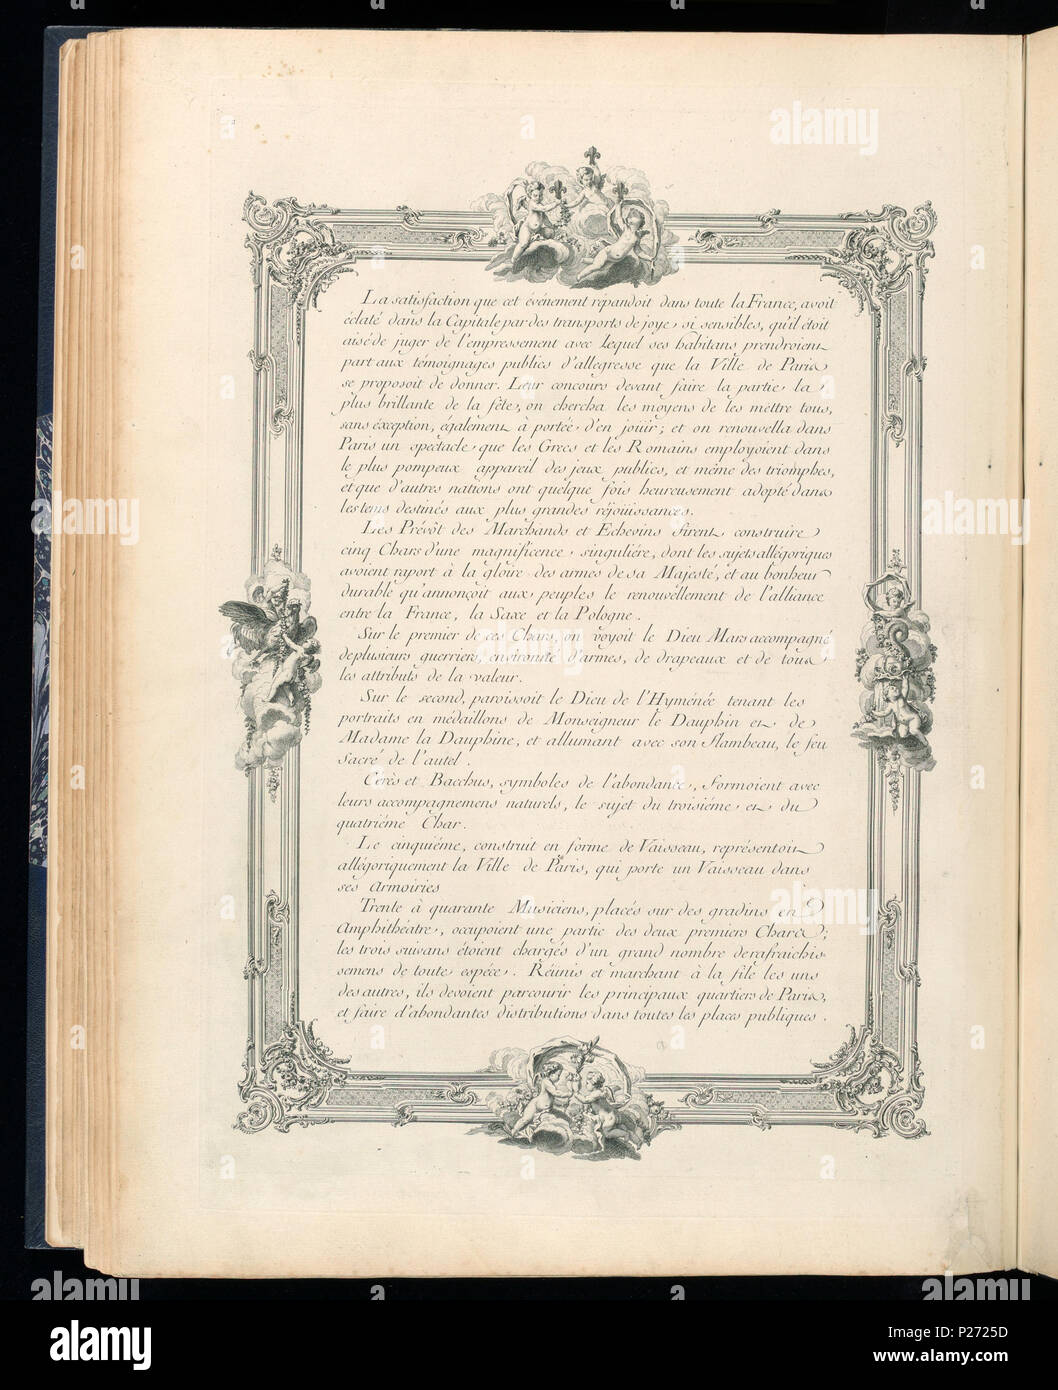 La satisfaction que cet événement répandoit dans toute la France, avoit
éclaté dans la Capitale par des transports de joye, si sensibles, qu'il étoit
aisé de juger de l'empressement avec lequel ses habitans prendroient
part aux témoignages publics d'allegresse que la Ville de Paris
se proposoit de donner. Leur concours devant faire la partie la
plus brillante de la fête, on chercha les moyens de les mettre tous,
sans exception, également à portée d'en jouir; et on renouvella dans
Paris un spectacle que les Grecs et les Romains employoient dans
le plus pompeux appareil des jeux publics, et même des triomphes,
et que d'autres nations ont quelque fois heureusement adopté dans
les tems destinés aux plus grandes réjoüissances.
Les Prévôt des Marchands et Echevins firent construire
cinq Chars d'une magnificence singuliére, dont les sujets allégoriques
avoient raport à la gloire des armes de sa Majesté, et au bonheur
durable qu'annonçoit aux peuples le renouvéllement de l'alliance
entre la France, la Saxe et la Pologne.
Sur le premier de ces Chars, on voyoit le Dieu Mars accompagné
de plusieurs guerriers, environné d'armes, de drapeaux et de tous
les attributs de la valeur.
Sur le second, paroissoit le Dieu de l'Hyménée tenant les
portraits en médaillons de Monseigneur le Dauphin et de
Madame la Dauphine, et allumant avec son flambeau, le feu
Sacré de l'autel.
Cérès et Bacchus, symboles de l'abondance, formoient avec
leurs accompagnemens naturels, le sujet du troisiéme et du
quatriéme Char.
Le cinquiéme, construit en forme de Vaisseau, représentoit
allégoriquement la Ville de Paris, qui porte un Vaisseau dans
ses Armoiries
Trente à quarante Musiciens, placés sur des gradins en
Amphithéatre, occupoient une partie des deux premiers Chars;
les trois suivans étoient chargés d'un grand nombre de rafraichis-
semens de toute espéce. Réunis et marchant à la file les uns
des autres, ils devoient parcourir les principaux quartiers de Paris,
et faire d'abondantes distributions dans toutes les places publiques.
alamy
Image ID: P2725D
www.alamy.com